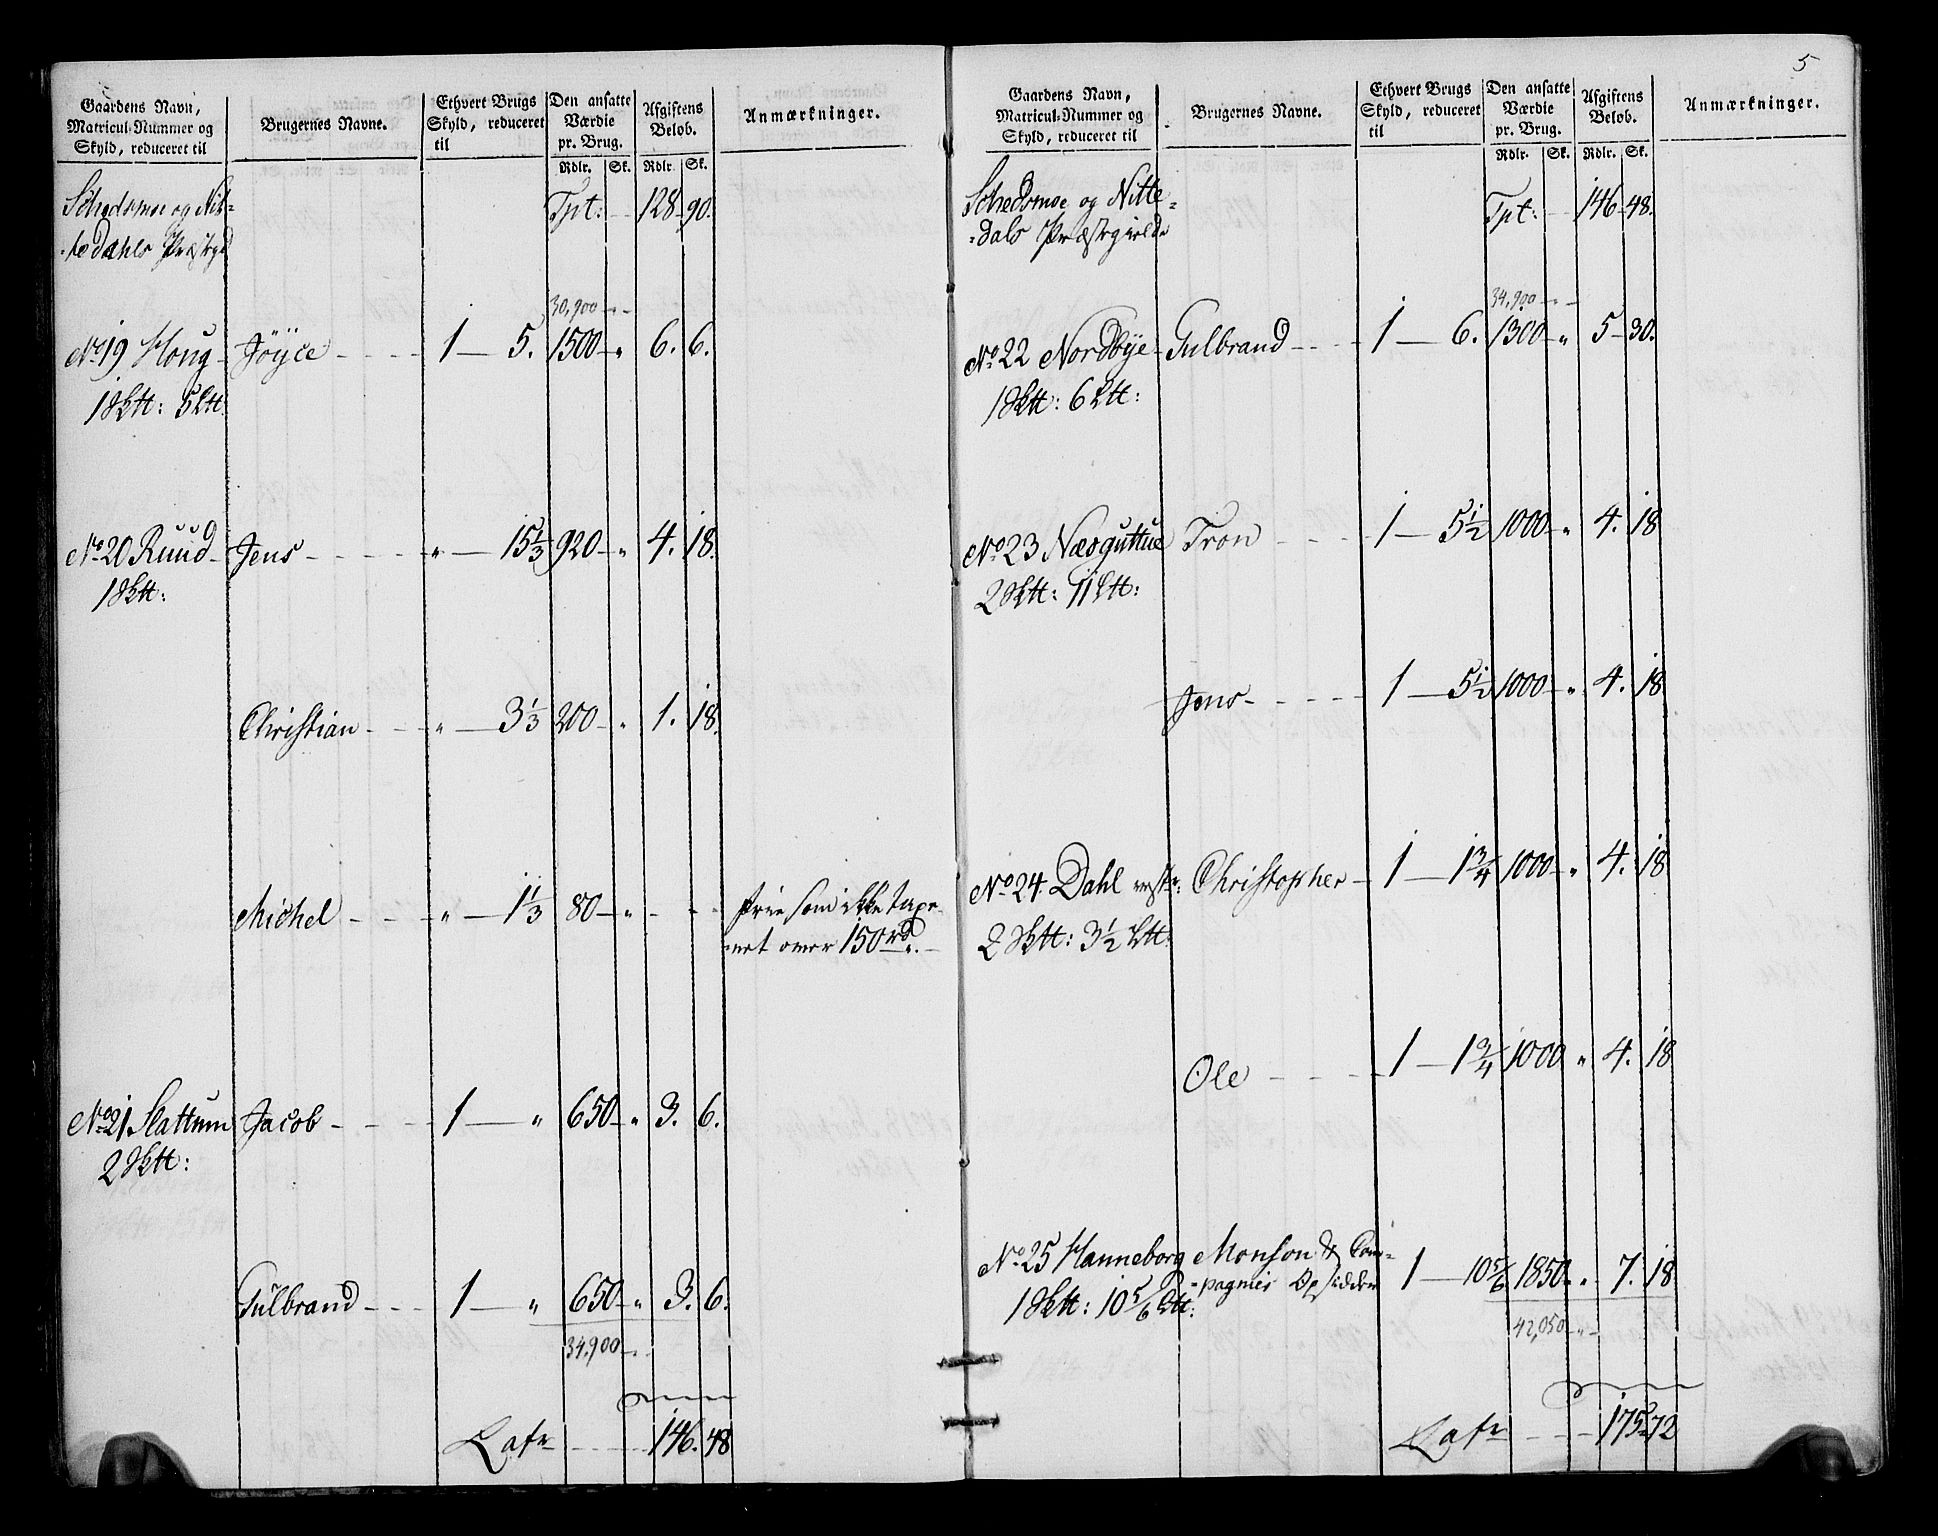 Gaardens Navn,
Matricul-Nummer og
Skyld, reduceret til
Brugernes Navne.
Ethvert Brugs
Skyld, reduceret
til
Den ansatte
Værdie
pr. Brug.
Rdlr. Sk.
Afgiftens
Beløb.
Rdlr. Sk.
Anmærkninger.
Schedsmoe og Nit-
tedahls Præstegd
Tpt: 128 90.
30,900
No 19 Houg Jöyce 1 5. 1500 " 6. 6.
1 Sktt: 5 Ltt
No 20 Ruud Jens " 15 1/3 920 " 4. 18.
1 Sktt:
Christian " 3 1/3 200 " 1. 18.
Michel " 1 1/3 80 " - - frie som ikke taxe-
ret over 150 rd.
No 21 Slattum Jacob 1 " 650 " 3. 6.
2 Sktt:
Gulbrand 1 " 650 " 3. 6.
34,900
Lafr 146. 48
5
Gaardens Navn,
Matricul-Nummer og
Skyld, reduceret til
Brugernes Navne.
Ethvert Brugs
Skyld, reduceret
til
Den ansatte
Værdie
pr. Brug.
Rdlr. Sk.
Afgiftens
Beløb.
Rdlr. Sk.
Anmærkninger.
Schedsmoe og Nitte-
dals Præstegielde
Tpt: 146 48.
34,900
No 22 Nordbye Gulbrand 1 6. 1300 " 5 30.
1 Sktt: 6 Ltt:
No 23 Næsguttue Tron 1 5 1/2 1000 " 4. 18
2 Sktt: 11 Ltt:
Jens 1 5 1/2 1000 " 4. 18
No 24 Dahl vestr: Christopher 1 1 3/4 1000 " 4. 18
2 Sktt: 3 1/2 Ltt:
Ole 1 1 3/4 1000 " 4. 18
No 25 Hanneborg Monson & Com-
pagnies Opsidder 1 10 5/6 1850 " 7. 18
1 Sktt: 10 5/6 Ltt:
42,050
Lafr 175 72